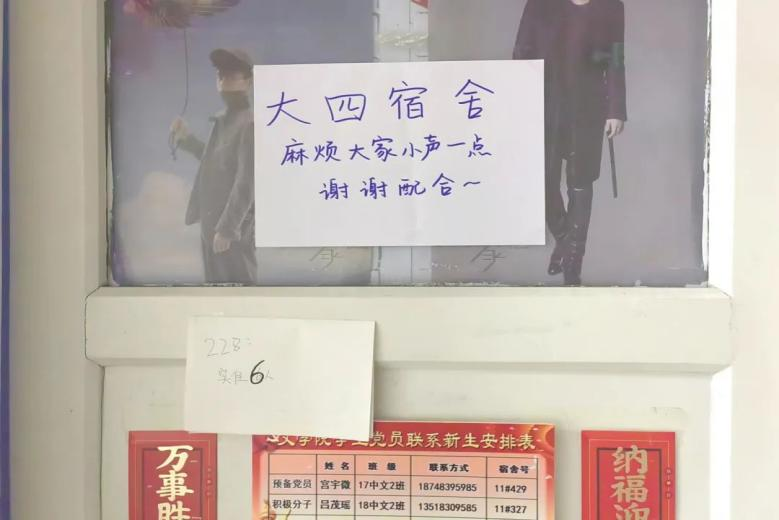 大四宿舍
麻烦大家小声一点
谢谢配合~
228:
实住6人
文学院学生党员联系新生安排表
姓名 班级 联系方式 宿舍号
预备党员 宫宇微 17中文2班 18748395985 11#429
积极分子 吕茂瑶 18中文2班 13518309585 11#327
万事胜
纳福迎